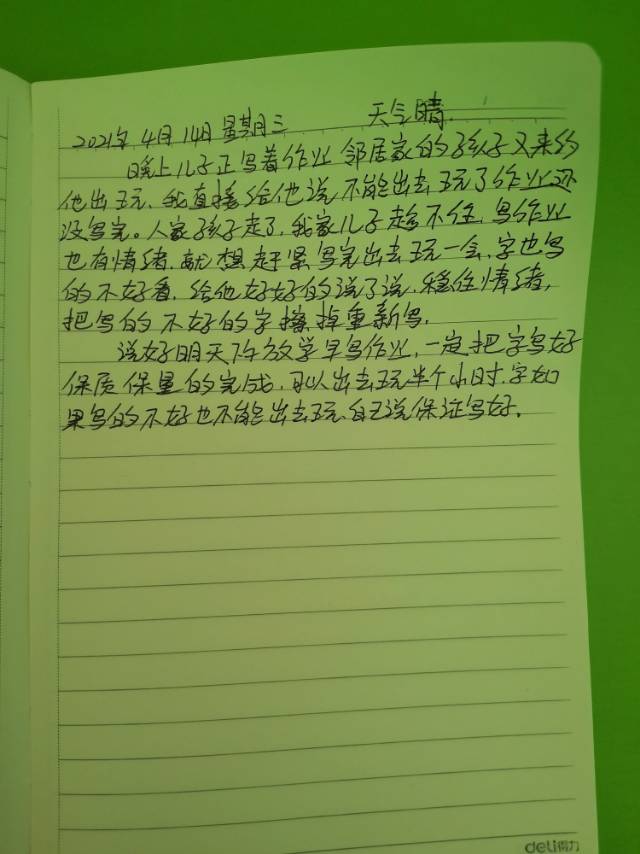 2021年4月14日 星期三 天气晴.
晚上儿子正写着作业 邻居家的孩子又来约
他出玩、我直接给他说不能出去玩了作业还
没写完。人家孩子走了,我家儿子趁不住,写作业
也有情绪.就想赶紧写完出去玩一会,字也写
的不好看.给他好好的说了说.稳住情绪,
把写的不好的字擦掉重新写.
说好明天下午放学早写作业,一定把字写好
保质保量的完成,可以出去玩半个小时.字如
果写的不好也不能出去玩.自己说保证写好.
deli得力